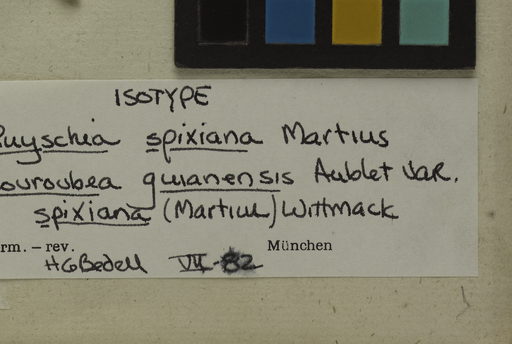 ISOTYPE
Ruyschia spixiana Martius
ouroubea guianensis Aublet var.
spixiana (Martius) Wittmack
rm. – rev. München
HGBedell VII-82